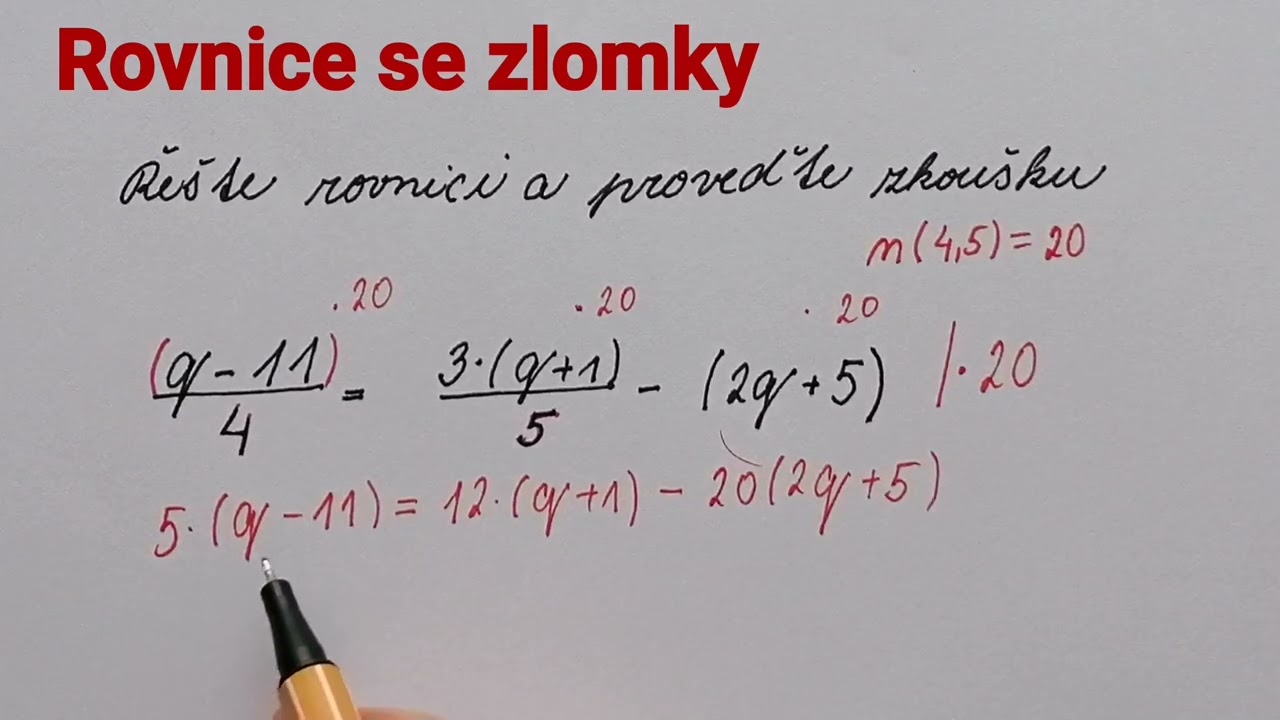 Rovnice se zlomky
Řešte rovnici a proveďte zkoušku
n(4,5) = 20
· 20 · 20 · 20
(q - 11)/4 = 3·(q+1)/5 - (2q + 5) /· 20
5·(q - 11) = 12·(q + 1) - 20(2q + 5)